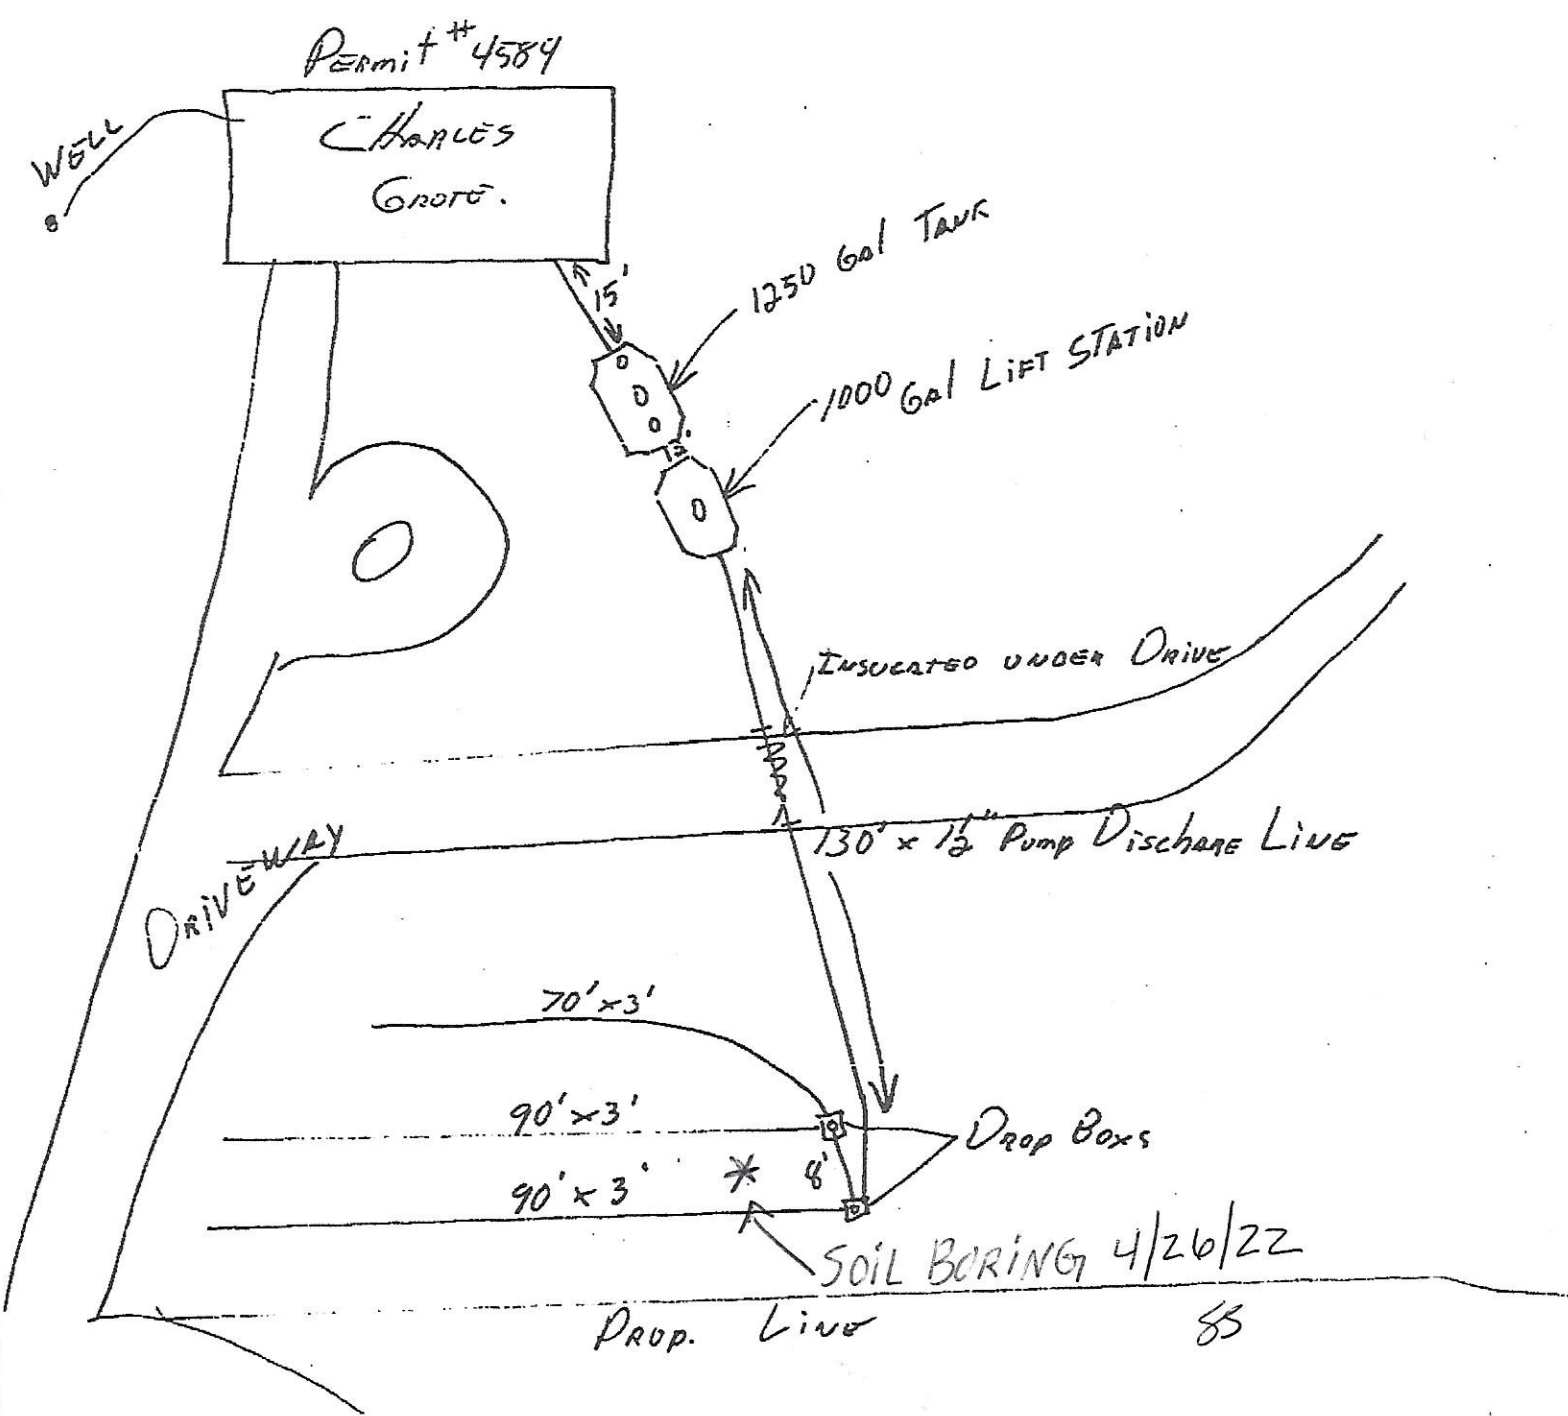 PERMIT # 4584
WELL
CHARLES
GROTE.
15'
1250 GAL TANK
12"
1000 GAL LIFT STATION
INSULATED UNDER DRIVE
130' x 1½" PUMP DISCHARE LINE
DRIVEWAY
70' x 3'
90' x 3'
DROP BOXS
8'
90' x 3'
*
SOIL BORING 4/26/22
PROP. LINE